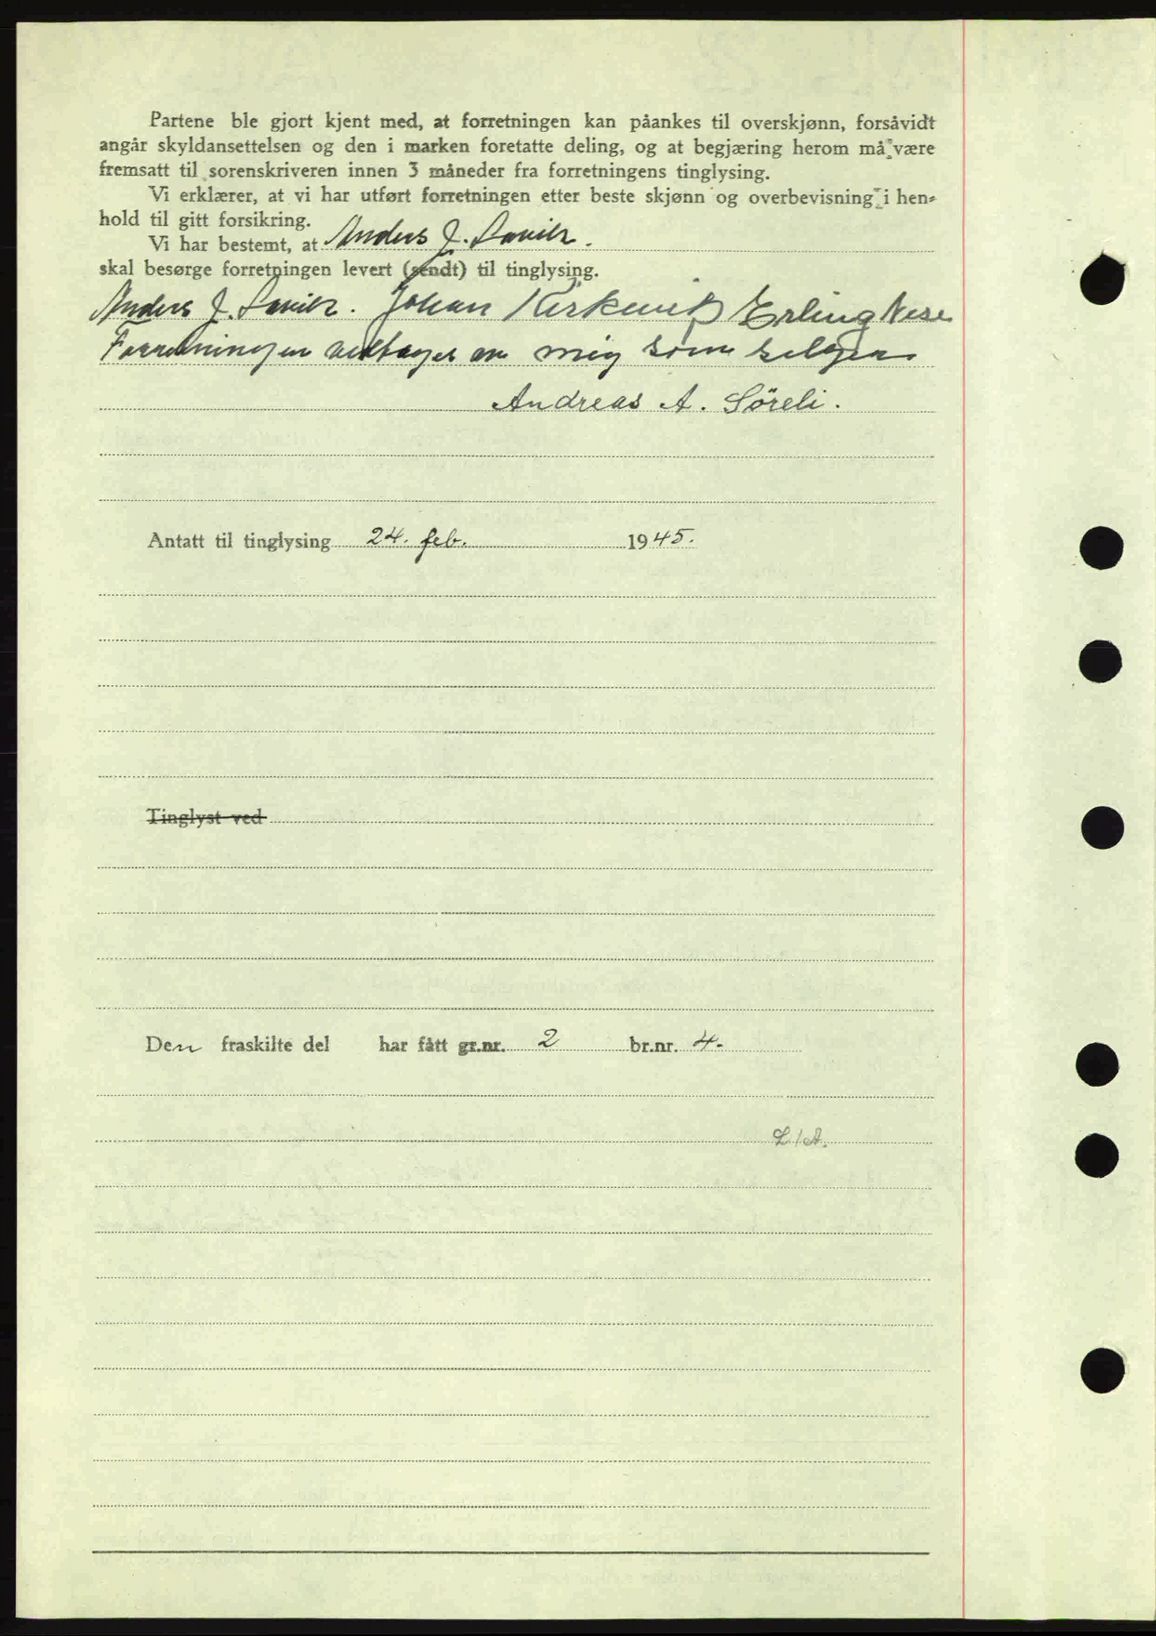 Partene ble gjort kjent med, at forretningen kan påankes til overskjønn, forsåvidt
angår skyldansettelsen og den i marken foretatte deling, og at begjæring herom må være
fremsatt til sorenskriveren innen 3 måneder fra forretningens tinglysing.
Vi erklærer, at vi har utført forretningen etter beste skjønn og overbevisning i hen-
hold til gitt forsikring.
Vi har bestemt, at Anders J.
skal besørge forretningen levert (sendt) til tinglysing.
Anders J. Johan Erling Nese
Forretningen vedtages av mig som selger
Andreas A. Söreli.
Antatt til tinglysing 24. feb. 1945.
Tinglyst ved
Den fraskilte del har fått gr.nr. 2 br.nr. 4.